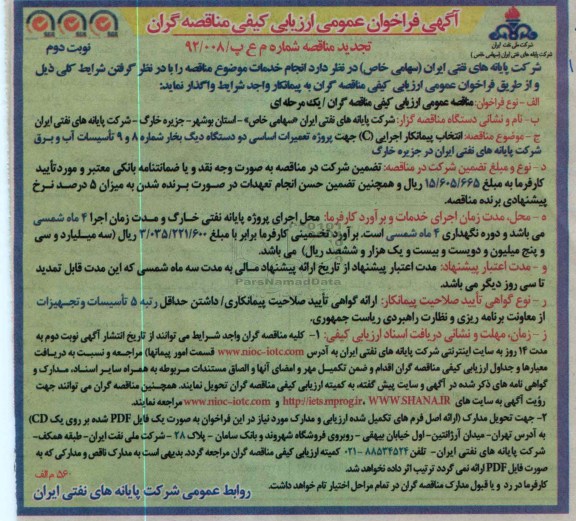 آگهی فراخوان عمومی ارزیابی کیفی مناقصه گران
شرکت ملی نفت ایران
شرکت پایانه های نفتی ایران (سهامی خاص)
تجدید مناقصه شماره م ع ب/۹۲/۰۰۸
نوبت دوم
شرکت پایانه های نفتی ایران (سهامی خاص) در نظر دارد انجام خدمات موضوع مناقصه را با در نظر گرفتن شرایط کلی ذیل
و از طریق فراخوان عمومی ارزیابی کیفی مناقصه گران به پیمانکار واجد شرایط واگذار نماید:
الف - نوع فراخوان: مناقصه عمومی ارزیابی کیفی مناقصه گران / یک مرحله ای
ب - نام و نشانی دستگاه مناقصه گزار: شرکت پایانه های نفتی ایران «سهامی خاص» - استان بوشهر- جزیره خارگ - شرکت پایانه های نفتی ایران
ج - موضوع مناقصه: انتخاب پیمانکار اجرایی (C) جهت پروژه تعمیرات اساسی دو دستگاه دیگ بخار شماره ۸ و ۹ تأسیسات آب و برق
شرکت پایانه های نفتی ایران در جزیره خارگ
د- نوع و مبلغ تضمین شرکت در مناقصه: تضمین شرکت در مناقصه به صورت وجه نقد و یا ضمانتنامه بانکی معتبر و مورد تأیید
کارفرما به مبلغ ۱۵/۶۰۵/۶۶۵ ریال و همچنین تضمین حسن انجام تعهدات در صورت برنده شدن به میزان ۵ درصد نرخ
پیشنهادی برنده مناقصه.
ه - محل، مدت زمان اجرای خدمات و برآورد کارفرما: محل اجرای پروژه پایانه نفتی خارگ و مدت زمان اجرا ۴ ماه شمسی
می باشد و دوره نگهداری ۴ ماه شمسی است. برآورد تخمینی کارفرما برابر با مبلغ ۳/۰۳۵/۲۲۱/۶۰۰ ریال (سه میلیارد و سی
و پنج میلیون و دویست و بیست و یک هزار و ششصد ریال) می باشد.
و - مدت اعتبار پیشنهاد: مدت اعتبار پیشنهاد از تاریخ ارائه پیشنهاد مالی به مدت سه ماه شمسی که این مدت قابل تمدید
تا سی روز دیگر می باشد.
ر - نوع گواهی تأیید صلاحیت پیمانکار: ارائه گواهی تأیید صلاحیت پیمانکاری/ داشتن حداقل رتبه ۵ تأسیسات و تجهیزات
از معاونت برنامه ریزی و نظارت راهبردی ریاست جمهوری.
ز - زمان، مهلت و نشانی دریافت اسناد ارزیابی کیفی: ۱- کلیه مناقصه گران واجد شرایط می توانند از تاریخ انتشار آگهی نوبت دوم به
مدت ۱۴ روز به سایت اینترنتی شرکت پایانه های نفتی ایران به آدرس www.nioc-iotc.com قسمت امور پیمانها) مراجعه و نسبت به دریافت
معیارها و جداول ارزیابی کیفی مناقصه گران اقدام و ضمن تکمیل مهر و امضای آنها و الصاق مستندات مربوطه به همراه سایر اسناد، مدارک و
گواهی نامه های ذکر شده در آگهی و سایت پیش گفته، به کمیته ارزیابی کیفی مناقصه گران تحویل نمایند. همچنین مناقصه گران می توانند جهت
رؤیت آگهی به سایت های http://iets.mporg.ir، WWW.SHANA.IR و www.nioc-iotc.com مراجعه نمایند.
۲- جهت تحویل مدارک (ارائه اصل فرم های تکمیل شده ارزیابی و مدارک مورد نیاز در این فراخوان به صورت یک فایل PDF شده بر روی یک CD)
به آدرس تهران- میدان آرژانتین- اول خیابان بیهقی - روبروی فروشگاه شهروند و بانک سامان - پلاک ۲۸ - شرکت ملی نفت ایران- طبقه همکف-
شرکت پایانه های نفتی ایران- تلفن ۸۸۵۳۴۵۲۴ - ۰۲۱ کمیته ارزیابی کیفی مناقصه گران مراجعه گردد. بدیهی است به مدارک ناقص و مدارکی که به
صورت فایل PDF ارائه نمی گردد ترتیب اثر داده نخواهد شد.
کارفرما در رد و یا قبول مدارک مناقصه گران در تمام مراحل اختیار تام خواهد داشت.
۵۶۰ م الف
روابط عمومی شرکت پایانه های نفتی ایران
ParsNamadData